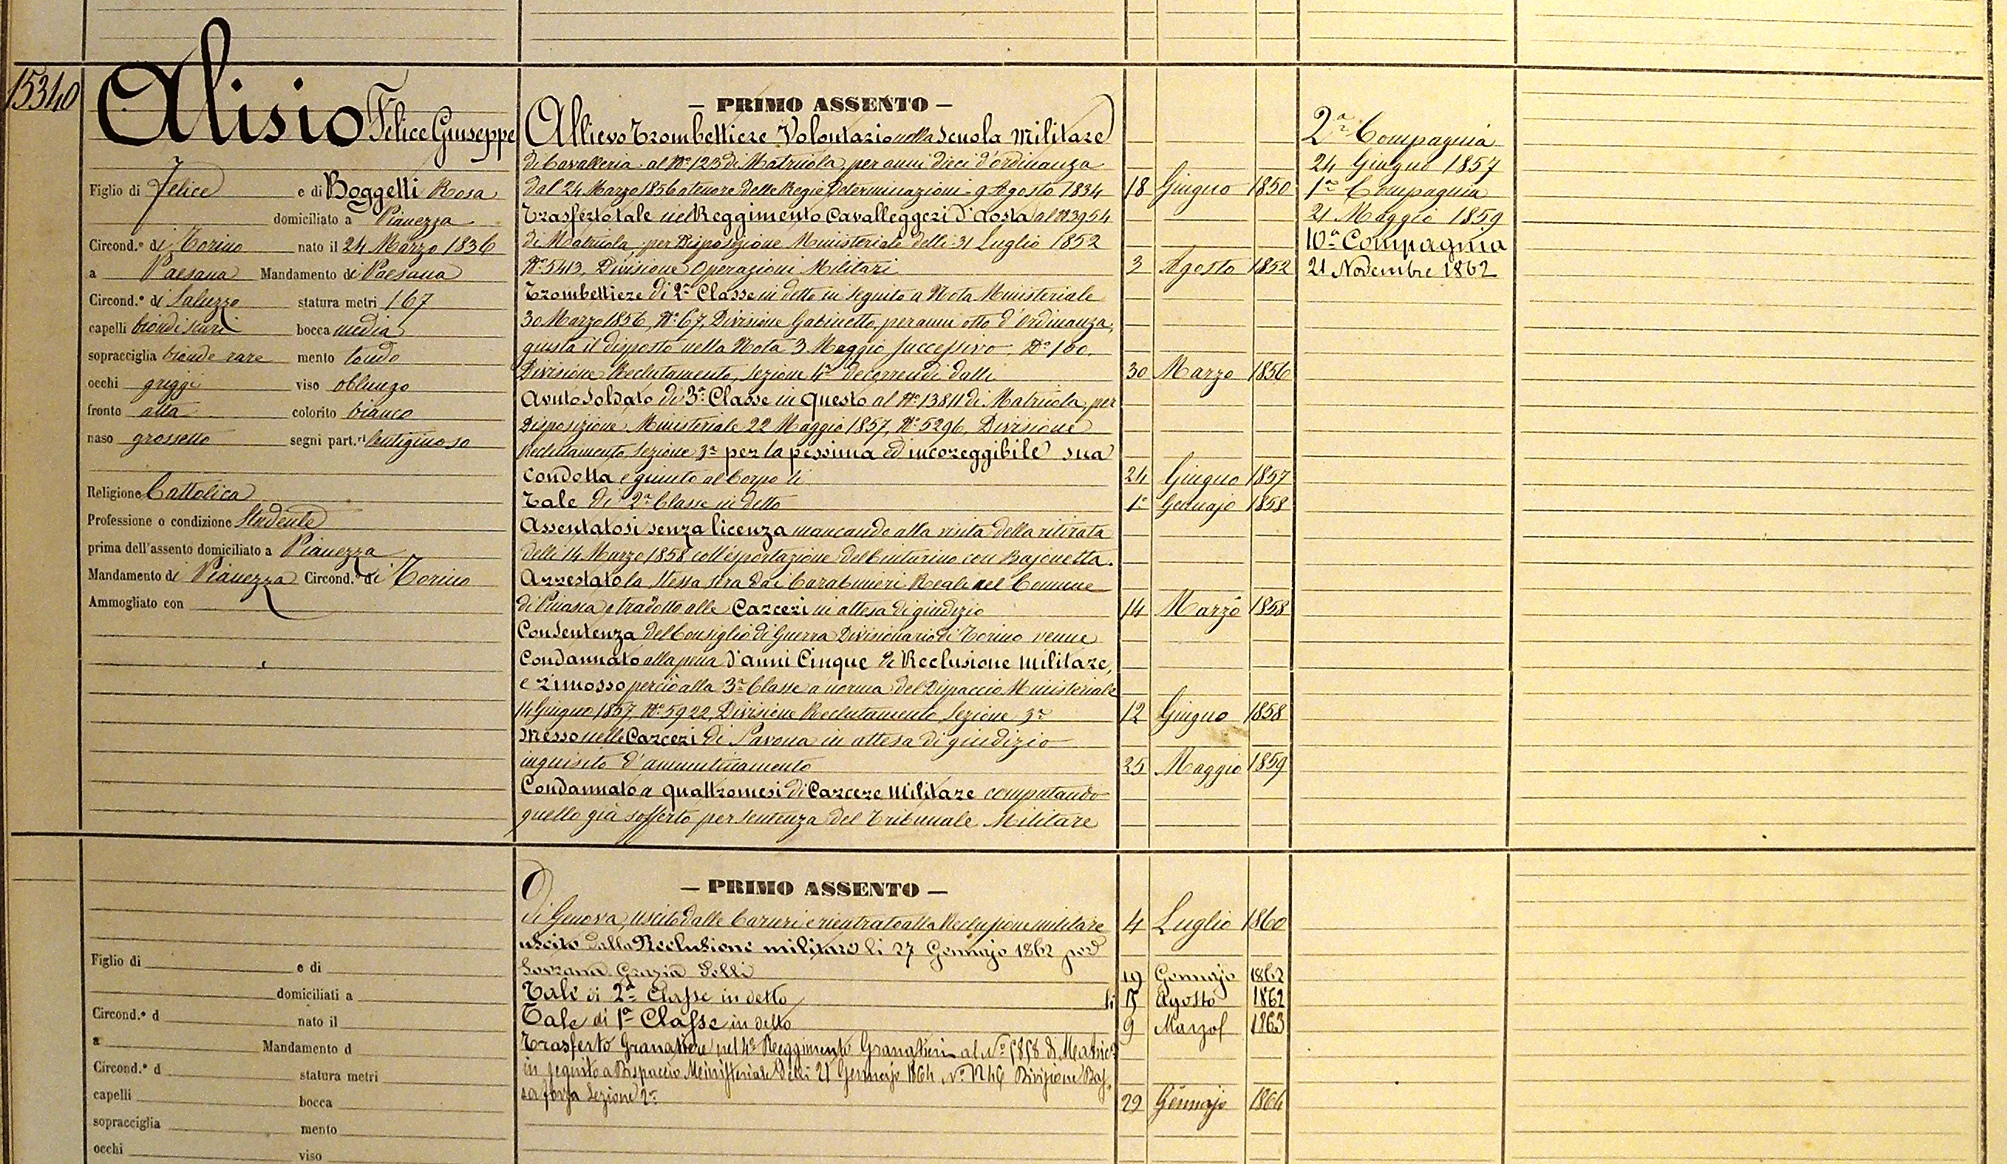 15340
Alisio Felice Giuseppe
Figlio di Felice e di Boggetti Rosa
domiciliato a Pianezza
Circond.º di Torino nato il 24 Marzo 1836
a Paesana Mandamento di Paesana
Circond.º di Saluzzo statura metri 1 67
capelli biondi scuri bocca media
sopracciglia bionde rare mento tondo
occhi griggi viso oblungo
fronte alta colorito bianco
naso grossetto segni part.ri lentiginoso
Religione Cattolica
Professione o condizione Studente
prima dell'assento domiciliato a Pianezza
Mandamento di Pianezza Circond.º di Torino
Ammogliato con
— PRIMO ASSENTO —
Allievo Trombettiere Volontario nella Scuola Militare
di Cavalleria al Nº 123 di Matricola, per anni dieci d'ordinanza
dal 24 Marzo 1856 a tenore delle Regie Determinazioni 9 Agosto 1834 18 Giugno 1850
Trasferto tale nel Reggimento Cavalleggeri d'Aosta al Nº 3954
di Matricola, per Disposizione Ministeriale delli 31 Luglio 1852
Nº 5413, Divisione Operazioni Militari 3 Agosto 1852
Trombettiere di 2ª Classe in detto in seguito a Nota Ministeriale
30 Marzo 1856, Nº 67, Divisione Gabinetto, per anni otto d'Ordinanza,
giusta il disposto nella Nota 3 Maggio successivo Nº 160
Divisione Reclutamento, Sezione 4ª decorrendi dalli 30 Marzo 1856
Avuto Soldato di 3ª Classe in questo al Nº 13811 di Matricola, per
Disposizione Ministeriale 22 Maggio 1857, Nº 5296, Divisione
Reclutamento, Sezione 3ª per la pessima ed incoreggibile sua
condotta e giunto al Corpo li 24 Giugno 1857
Tale di 2ª Classe in detto 1º Gennajo 1858
Assentatosi senza licenza mancando alla visita della ritirata
delli 14 Marzo 1858 coll'esportazione del Centurino con Bajonetta.
Arrestato la stessa sera dai Carabinieri Reali nel Comune
di Pinasca e tradotto alle Carceri in attesa di giudizio 14 Marzo 1858
Con sentenza del Consiglio di Guerra Divisionario di Torino venne
Condannato alla pena d'anni Cinque di Reclusione militare,
e rimosso perciò alla 3ª Classe a norma del Dispaccio Ministeriale
14 Giugno 1857, Nº 5922, Divisione Reclutamento, Sezione 3ª 12 Giugno 1858
Messo nelle Carceri di Savona in attesa di giudizio
inquisito d'ammutinamento 25 Maggio 1859
Condannato a quattro mesi di Carcere Militare computando
quello già sofferto per sentenza del Tribunale Militare
2ª Compagnia
24 Giugno 1857
1ª Compagnia
21 Maggio 1859
10ª Compagnia
21 Novembre 1862
— PRIMO ASSENTO —
di Genova, uscito dalle Carceri e rientrato alla Reclusione militare 4 Luglio 1860
uscito dalla Reclusione militare li 27 Gennajo 1862 per
Sovrana Grazia delli 19 Gennajo 1862
Tale di 2ª Classe in detto li 5 Agosto 1862
Tale di 1ª Classe in detto 9 Marzo 1863
Trasferto Granatiere nel 4º Reggimento Granatieri al Nº 5858 di Matric
in seguito a Dispaccio Ministeriale delli 21 Gennajo 1864, Nº 1246 Divisione Bas
sa forza Sezione 2ª 29 Gennajo 1864
Figlio di e di
domiciliati a
Circond.º d nato il
a Mandamento d
Circond.º d statura metri
capelli bocca
sopracciglia mento
occhi viso